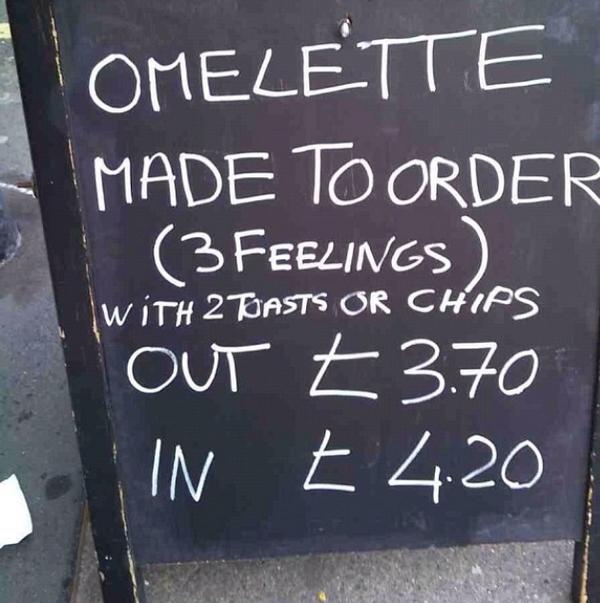 OMELETTE
MADE TO ORDER
(3 FEELINGS)
WiTH 2 TOASTS OR CHIPS
OUT £3.70
IN £4.20